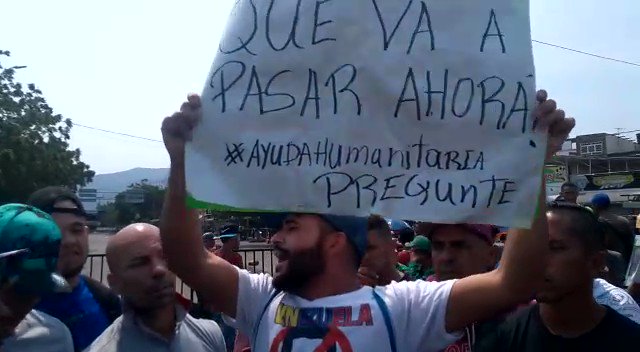 QUE VA A
PASAR AHORA?
#AYUDAHumanitaRIA
PREGUNTE
VENEZUELA